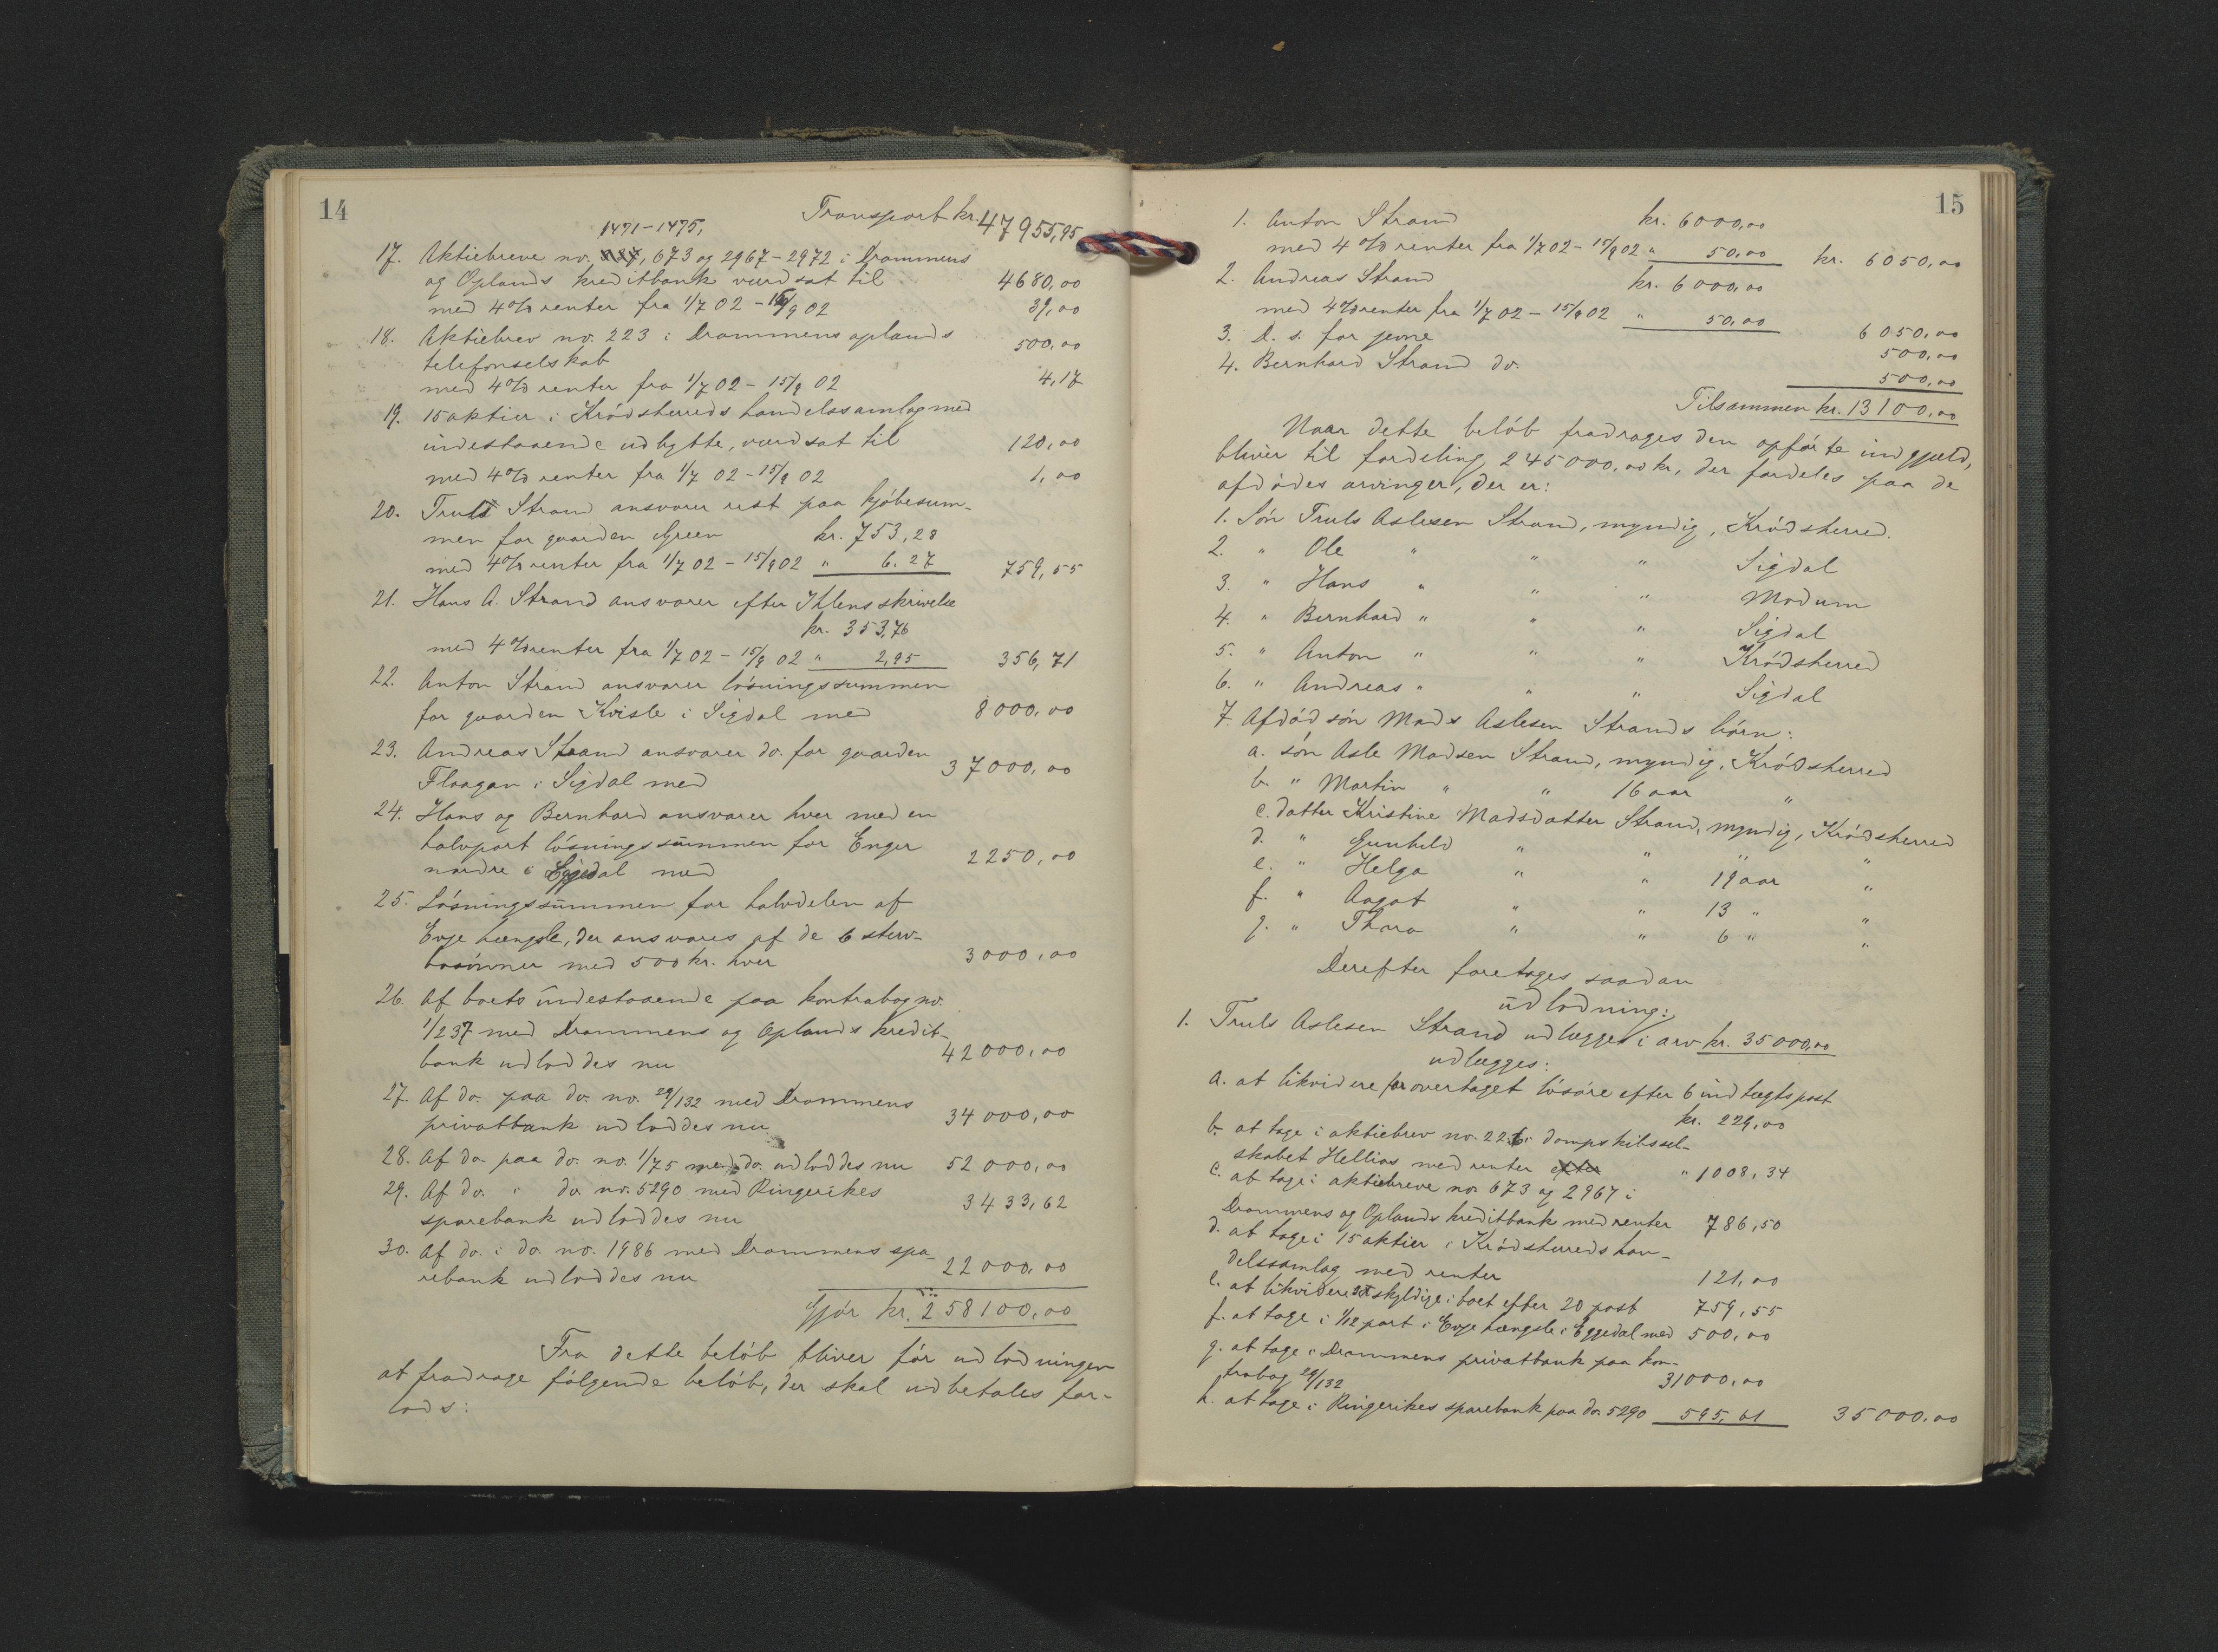 14
Transport kr. 47955,95
1471-1475,
17. Aktiebreve no. 673 og 2967-2972 i Drammens
og Oplands kreditbank værdsat til 4680,00
med 4% renter fra 1/7 02 - 15/9 02 39,00
18. Aktiebrev no. 223 i Drammens oplands 500,00
telefonselskab
med 4% renter fra 1/7 02 - 15/9 02 4,17
19. 15 aktier i Krødsherreds handelssamlag med
indestaaende udbytte, værdsat til 120,00
med 4% renter fra 1/7 02 - 15/9 02 1,00
20. Truls Strand ansvarer rest paa kjøbesum-
men for gaarden Green kr. 753,28
med 4% renter fra 1/7 02 - 15/9 02 " 6.27 759,55
21. Hans A. Strand ansvarer efter Ihlens skrivelse
kr. 353,76
med 4% renter fra 1/7 02 - 15/9 02 " 2,95 356,71
22. Anton Strand ansvarer løsningssummen
for gaarden Kvisle i Sigdal med 8000,00
23. Andreas Strand ansvarer do. for gaarden
Flaagan i Sigdal med 37000,00
24. Hans og Bernhard ansvarer hver med en
halvpart løsningssummen for Enger
nordre i Eggedal med 2250,00
25. Løsningssummen for halvdelen af
Evje hængsle, der ansvares af de 6 sterv-
bosønner med 500 kr. hver 3000,00
26. Af boets indestaaende paa kontrabog no.
1/237 med Drammens og Oplands kredit-
bank udloddes nu 42000,00
27. Af do. paa do. no. 29/132 med Drammens
privatbank udloddes nu 34000,00
28. Af do. paa do. no. 1/75 med do. udloddes nu 52000,00
29. Af do. i do. no. 5290 med Ringerikes
sparebank udloddes nu 3433,62
30. Af do. i do. no. 1986 med Drammens spa-
rebank udloddes nu 22000,00
Gjør kr. 258100,00
Fra dette beløb bliver før udlodningen
at fradrage følgende beløb, der skal udbetales for-
lods:
15
1. Anton Strand kr. 6000,00
med 4% renter fra 1/7 02 - 15/9 02 " 50,00 kr. 6050,00
2. Andreas Strand kr. 6000,00
med 4% renter fra 1/7 02 - 15/9 02 " 50,00 6050,00
3. D. s. for jevne 500,00
4. Bernhard Strand do. 500,00
Tilsammen kr. 13100,00
Naar dette beløb fradrages den opførte indgjæld,
bliver til fordeling 245000,00 kr, der fordeles paa de
afdødes arvinger, der er:
1. Søn Truls Aslesen Strand, myndig, Krødsherred.
2. " Ole " " " Sigdal
3. " Hans " " " Modum
4. " Bernhard " " " Sigdal
5. " Anton " " " Krødsherred
6. " Andreas " " " Sigdal
7. Afdød søn Mads Aslesen Strands børn:
a. søn Asle Madsen Strand, myndig, Krødsherred
b. " Martin " " 16 aar "
c. datter Kristine Madsdatter Strand, myndig, Krødsherred
d. " Gunhild " " " "
e. " Helga " " 19 aar "
f. " Aagot " " 13 " "
g. " Thora " " 6 " "
Derefter foretages saadan
udlodning:
1. Truls Aslesen Strand udlægges i arv kr. 35000,00
udlægges:
a. at likvidere for overtaget løsøre efter 6 indtægtspost
kr. 229,00
b. at tage i aktiebrev no. 226 i dampskibssel-
skabet Hellios med renter efter " 1008,34
c. at tage i aktiebreve no. 673 og 2967 i
Drammens og Oplands kreditbank med renter 786,50
d. at tage i 15 aktier i Krødsherreds han-
delssamlag med renter 121,00
e. at likvidere skyldige i boet efter 20 post 759,55
f. at tage i 1/12 part i Evje hængsle i Eggedal med 500,00
g. at tage i Drammens privatbank paa kon-
trabog 29/132 31000,00
h. at tage i Ringerikes sparebank paa do. 5290 595,61 35000,00